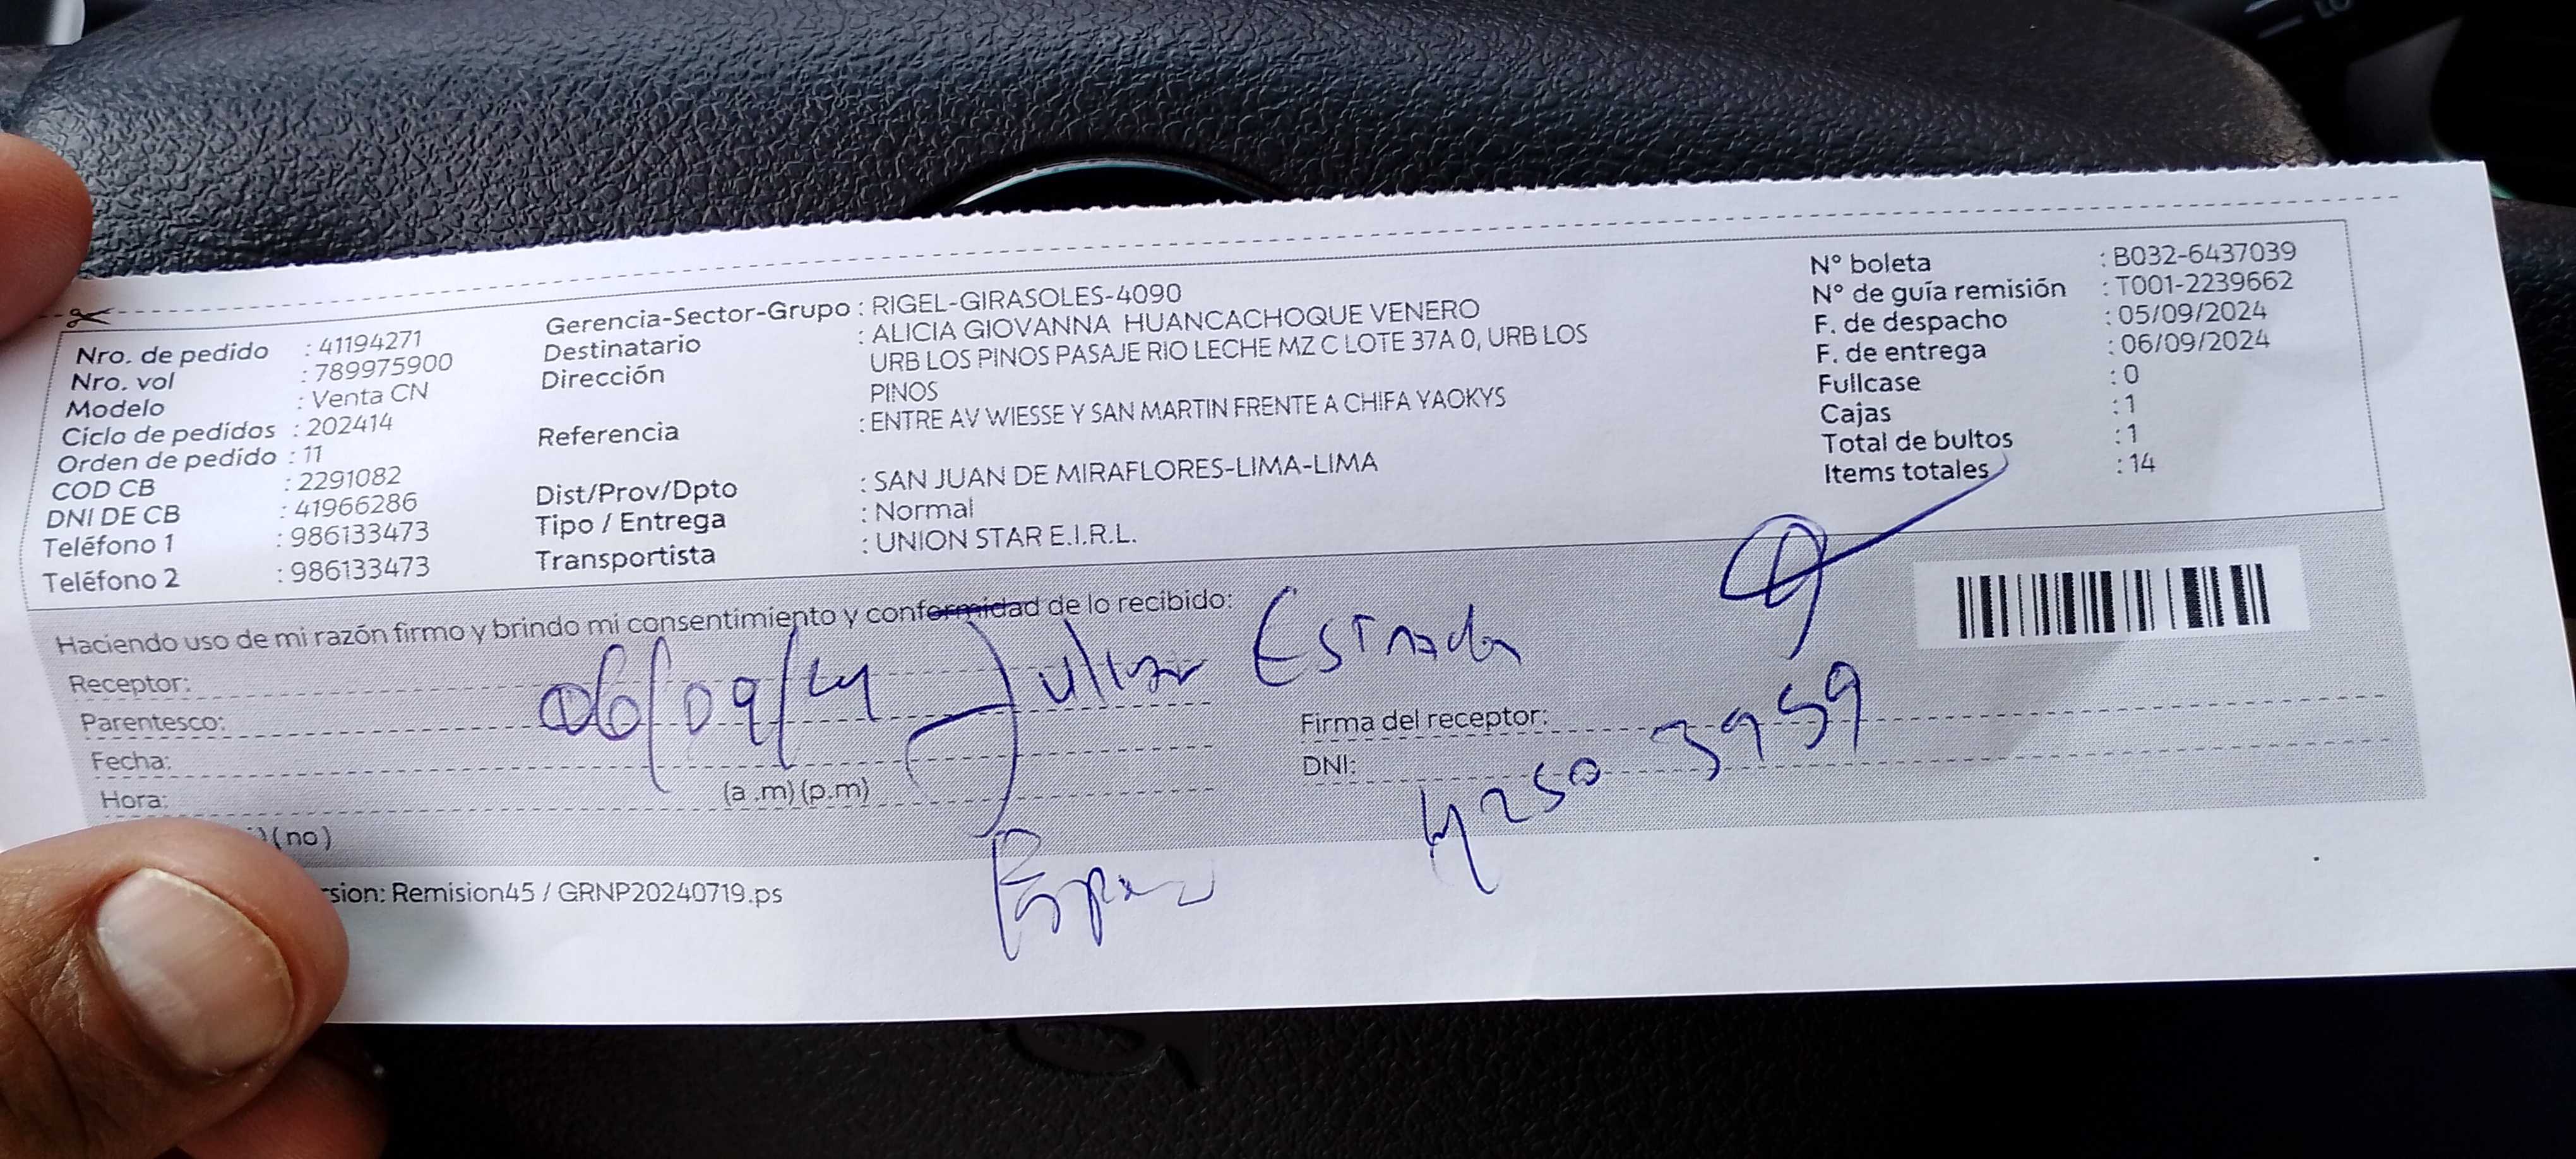 Nro. de pedido : 41194271
Nro. vol : 789975900
Modelo : Venta CN
Ciclo de pedidos : 202414
Orden de pedido : 11
COD CB : 2291082
DNI DE CB : 41966286
Teléfono 1 : 986133473
Teléfono 2 : 986133473
Gerencia-Sector-Grupo : RIGEL-GIRASOLES-4090
Destinatario : ALICIA GIOVANNA HUANCACHOQUE VENERO
Dirección URB LOS PINOS PASAJE RIO LECHE MZ C LOTE 37A 0, URB LOS
PINOS
Referencia : ENTRE AV WIESSE Y SAN MARTIN FRENTE A CHIFA YAOKYS
Dist/Prov/Dpto : SAN JUAN DE MIRAFLORES-LIMA-LIMA
Tipo / Entrega : Normal
Transportista : UNION STAR E.I.R.L.
N° boleta : B032-6437039
N° de guía remisión : T001-2239662
F. de despacho : 05/09/2024
F. de entrega : 06/09/2024
Fullcase : 0
Cajas : 1
Total de bultos : 1
Items totales : 14
Haciendo uso de mi razón firmo y brindo mi consentimiento y conformidad de lo recibido:
Receptor:
06/09/24
Estrada
Parentesco:
Fecha:
Hora: (a .m) (p.m)
Firma del receptor:
DNI: 4250 3959
) ( no )
rsion: Remision45 / GRNP20240719.ps